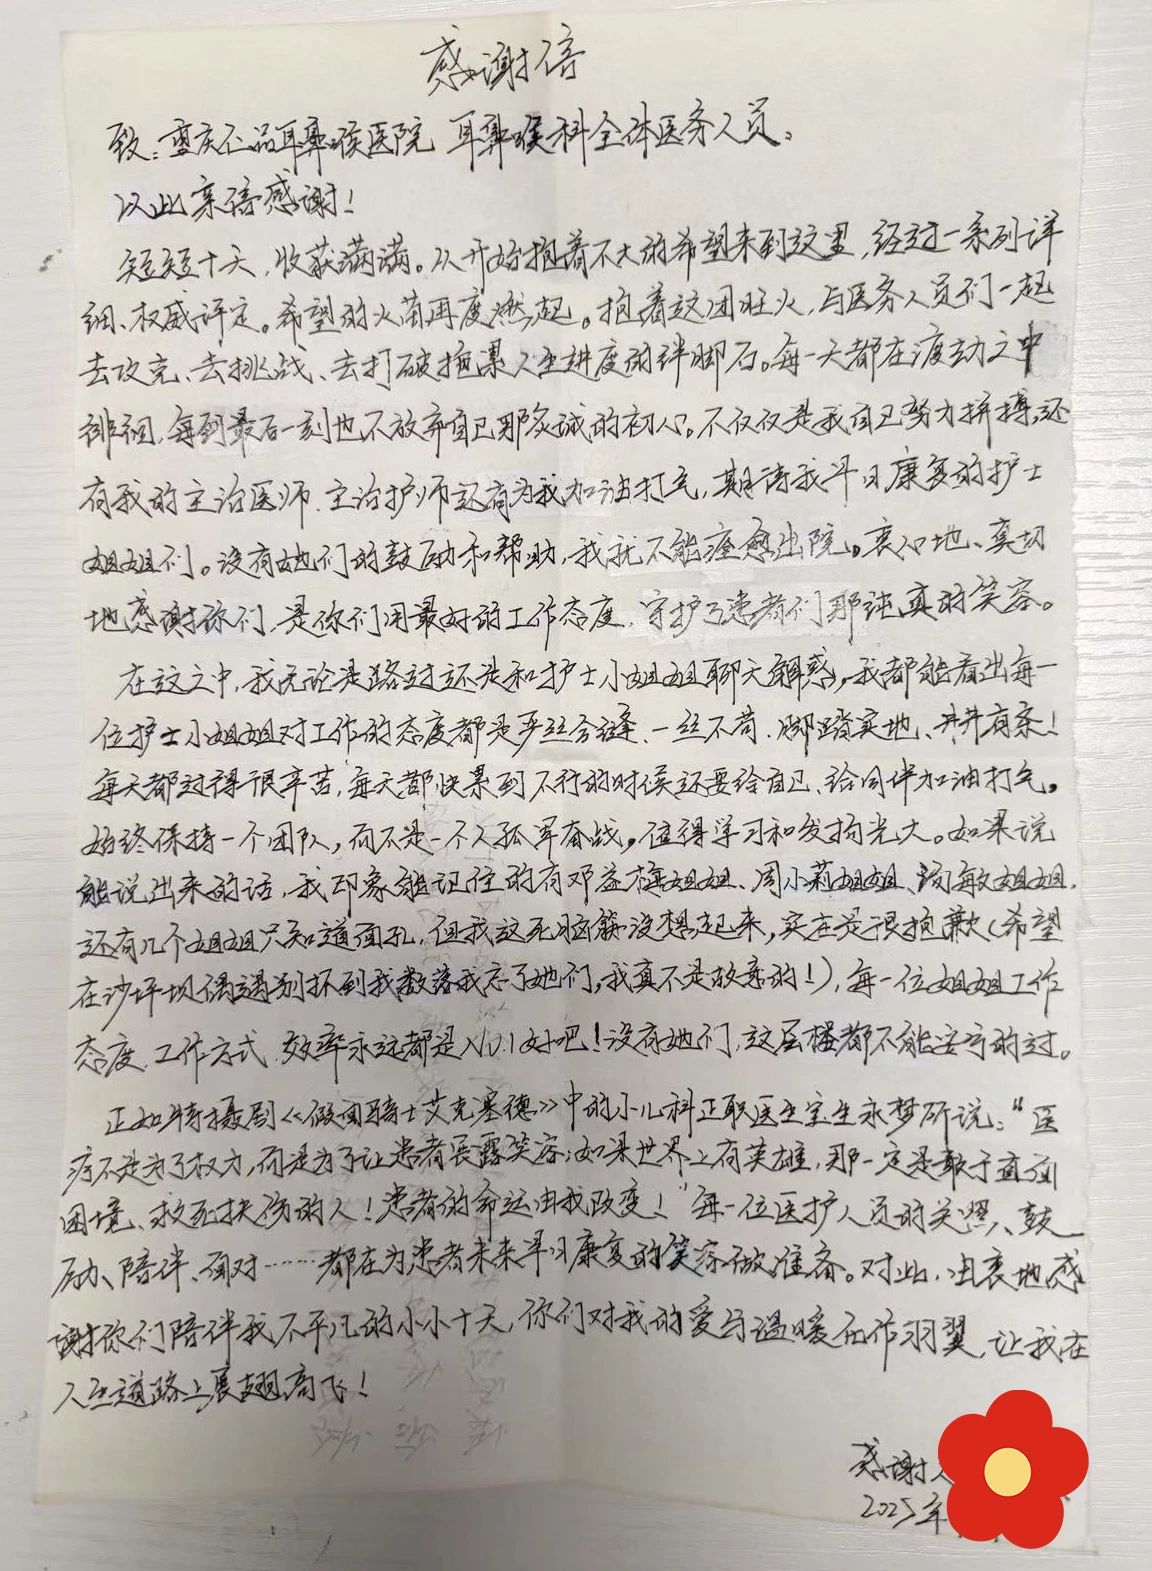 感谢信
致：重庆仁品耳鼻喉医院 耳鼻喉科全体医务人员。
以此亲信感谢！
短短十天，收获满满。从开始抱着不大的希望来到这里，经过一系列详
细、权威评定。希望的火苗再度燃起。抱着这团旺火，与医务人员们一起
去攻克、去挑战、去打破拖累人生进度的绊脚石。每一天都在渡劫之中
徘徊，每到最后一刻也不放弃自己那众诚的初心。不仅仅是我自己努力拼搏，还
有我的主治医师、主治护师还有为我加油打气，期待我早日康复的护士
姐姐们。没有她们的鼓励和帮助，我就不能痊愈出院。衷心地、真切
地感谢你们，是你们用最好的工作态度，守护了患者们那纯真的笑容。
在这之中，我无论是路过还是和护士小姐姐聊天解惑，我都能看出每一
位护士小姐姐对工作的态度都是严丝合缝、一丝不苟、脚踏实地、井井有条！
每天都过得很辛苦，每天都快累到不行的时候还要给自己、给同伴加油打气。
始终保持一个团队，而不是一个人孤军奋战。值得学习和发扬光大。如果说
能说出来的话，我印象能记住的有邓益梅姐姐、周小莉姐姐、汤敏姐姐，
还有几个姐姐只知道面孔，但我这死脑筋没想起来，实在是很抱歉（希望
在沙坪坝偶遇别抓到我数落我忘了她们，我真不是故意的！），每一位姐姐工作
态度、工作方式、效率永远都是NO.1好吧！没有她们，这层楼都不能安宁的过。
正如特摄剧《假面骑士艾克塞德》中的小儿科正职医生宝生永梦所说：“医
疗不是为了权力，而是为了让患者展露笑容；如果世界上有英雄，那一定是敢于直面
困境、救死扶伤的人！患者的命运由我改变！”每一位医护人员的关照、鼓
励、陪伴、面对……都在为患者未来早日康复的笑容做准备。对此，由衷地感
谢你们陪伴我不平凡的小小十天，你们对我的爱与温暖化作羽翼，让我在
人生道路上展翅高飞！
感谢人
2025年